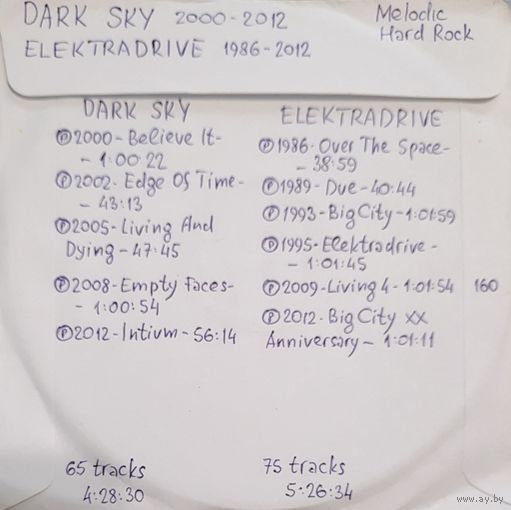 DARK SKY 2000-2012
Melodic
Hard Rock
ELEKTRADRIVE 1986-2012
DARK SKY
Ⓟ2000-Believe It-
- 1:00:22
Ⓟ2002-Edge Of Time-
- 43:13
Ⓟ2005-Living And
Dying-47:45
Ⓟ2008-Empty Faces-
- 1:00:54
Ⓟ2012-Intium-56:14
65 tracks
4:28:30
ELEKTRADRIVE
Ⓟ1986-Over The Space-
- 38:59
Ⓟ1989-Due-40:44
Ⓟ1993-Big City-1:01:59
Ⓟ1995-Elektradrive-
- 1:01:45
Ⓟ2009-Living 4-1:01:54
Ⓟ2012-Big City XX
Anniversary-1:01:11
75 tracks
5:26:34
160
www.ay.by